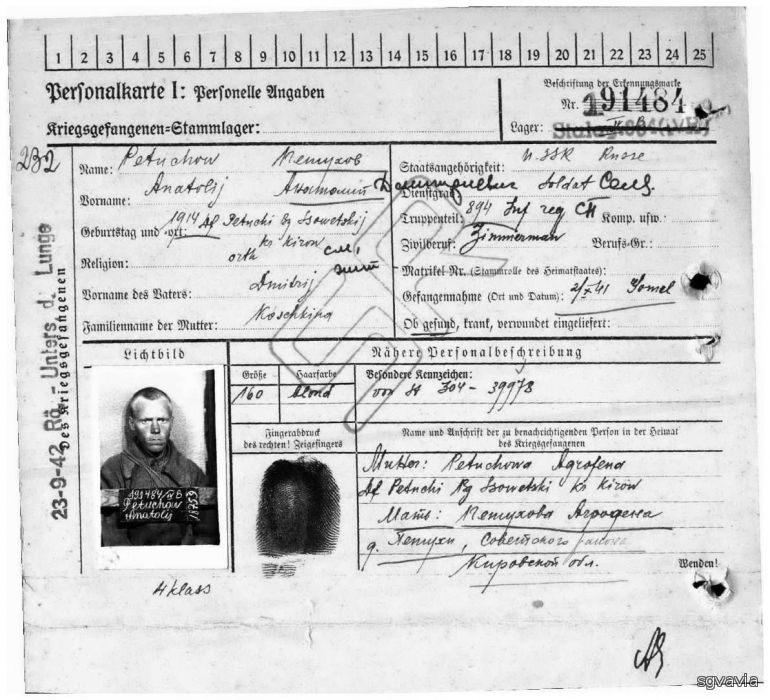 1 2 3 4 5 6 7 8 9 10 11 12 13 14 15 16 17 18 19 20 21 22 23 24 25
Personalkarte I: Personelle Angaben
Beschriftung der Erkennungsmarke
Nr. 191484
Kriegsgefangenen-Stammlager:
Lager:
232
Name: Petuchow Петухов
Vorname: Anatolij Анатолий Дмитриевич
Geburtstag und -ort: 1914 Df Petuchi Rg Ssowetskij
ks Kirow
Religion: orth
Vorname des Vaters: Dmitrij
Familienname der Mutter: Koschkina
Staatsangehörigkeit: U.SSR Russe
Dienstgrad: Soldat
Truppenteil: 894 Inf reg Komp. usw.:
Zivilberuf: Zimmerman Berufs-Gr.:
Matrikel Nr. (Stammrolle des Heimatstaates):
Gefangennahme (Ort und Datum): 2/X 41
Ob gesund, krank, verwundet eingeliefert:
23-9-42 Rö.-Unters d. Lunge
des Kriegsgefangenen
Lichtbild
Nähere Personalbeschreibung
Größe Haarfarbe Besondere Kennzeichen:
160 blond von St 304 - 39978
Fingerabdruck
des rechten! Zeigefingers
Name und Anschrift der zu benachrichtigenden Person in der Heimat
des Kriegsgefangenen
Mutter: Petuchowa Agrofena
Df Petuchi Rg Ssowetski ks Kirow
Мать: Петухова Агрофена
д. Петухи, Советского района
Кировской обл.
Wenden!
191484/IV B
Petuchow
Anatolij
18759
4 klass
sgvavia